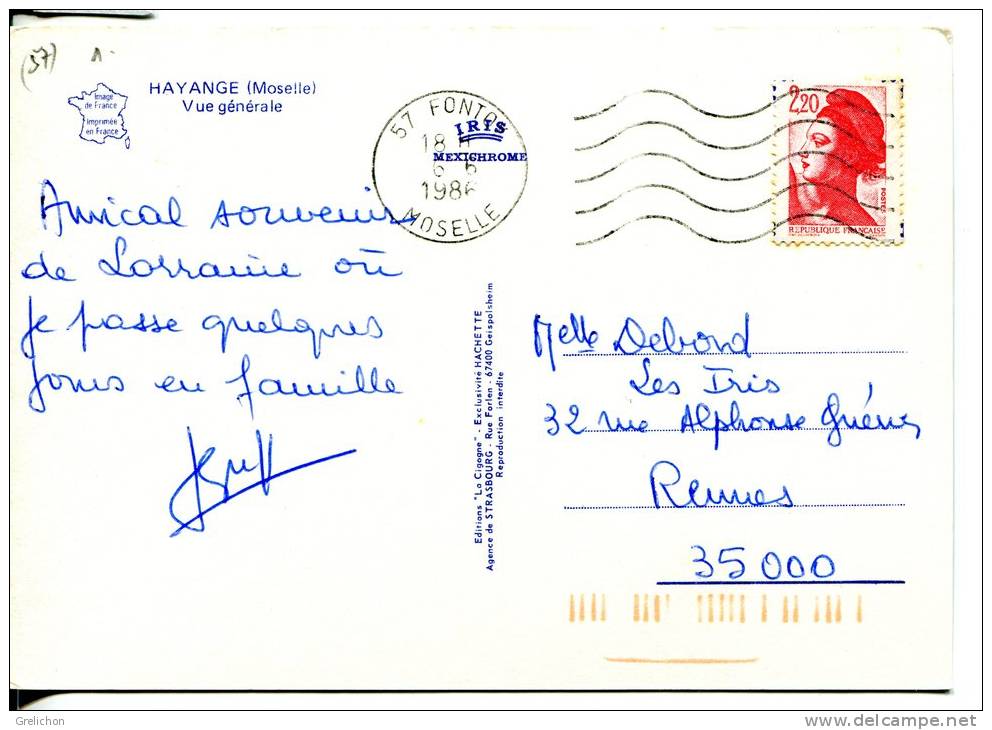 (57) 1-
HAYANGE (Moselle)
Vue générale
Image
de France
Imprimée
en France
57 FONTOY
18 H
6 6
1986
MOSELLE
IRIS
MEXICHROME
2,20
POSTES
REPUBLIQUE FRANÇAISE
Amical souvenir
de Lorraine où
je passe quelques
jours en famille
Editions "La Cigogne" - Exclusivité HACHETTE
Agence de STRASBOURG - Rue Forlen - 67400 Geispolsheim
Reproduction interdite
Melle Debord
Les Iris
32 rue Alphonse Guérin
Rennes
35000
Grelichon
delcampe.net